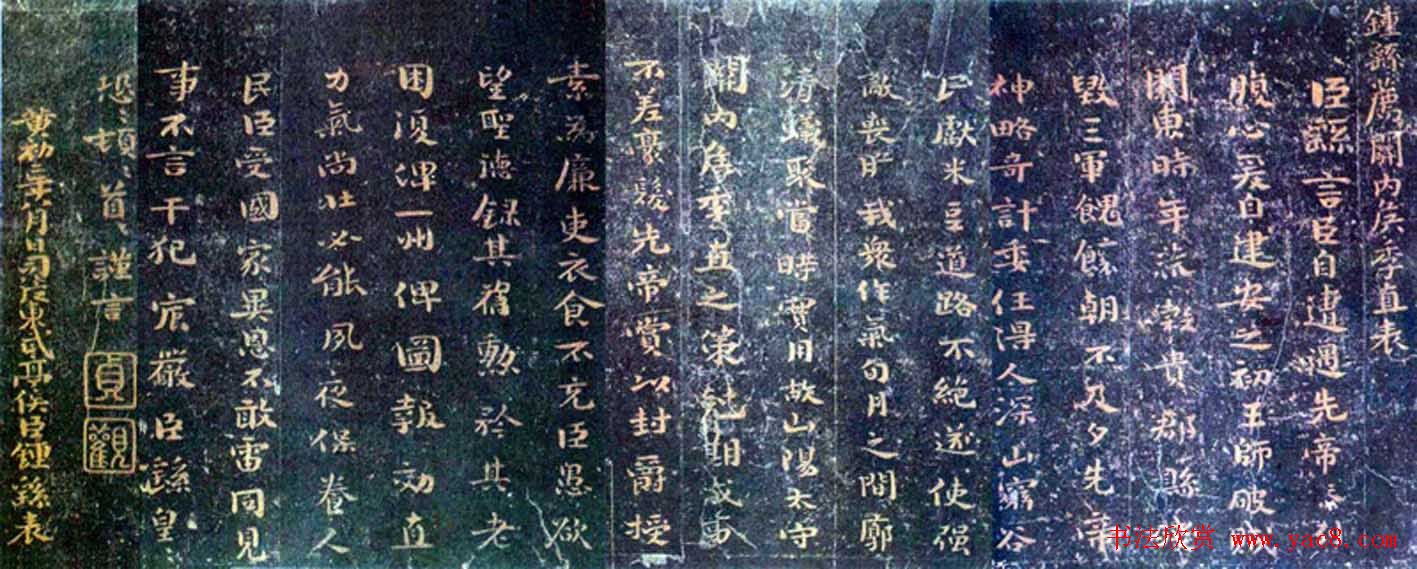 鍾繇薦關內侯季直表
臣繇言臣自遭遇先帝忝
腹心爰自建安之初王師破賊
關東時年荒穀貴郡縣
毀三軍餽饟朝不及夕先帝
神略奇計委任得人深山窮谷
民獻米豆道路不絕遂使强
敵喪膽我衆作氣旬月之間廓
清蟻聚當時實用故山陽太守
關內侯季直之策剋期成事
不差豪髮先帝賞以封爵授
素為廉吏衣食不充臣愚欲
望聖德錄其舊勳矜其老
困復俾一州俾圖報効直
力氣尚壯必能夙夜保養人
民臣受國家異恩不敢雷同見
事不言干犯宸嚴臣繇皇
恐〻頓〻首〻謹言
貞觀
黃初二年八月日司徒東武亭侯臣鍾繇表
书法欣赏 www.yac8.com